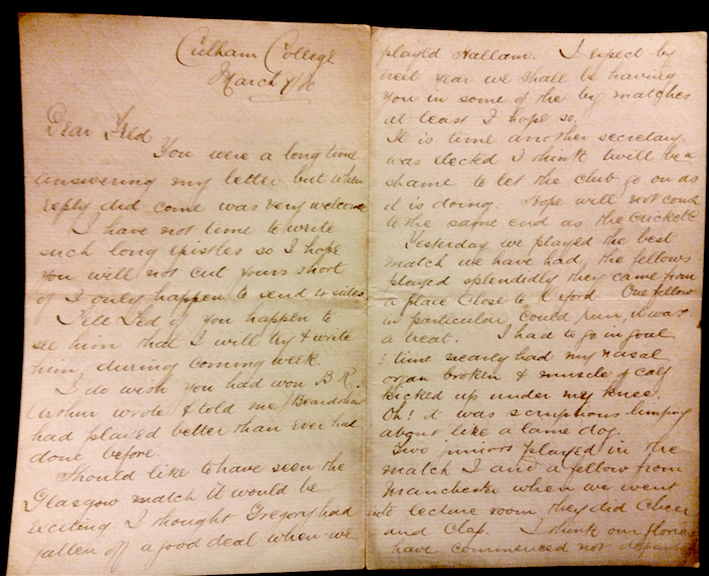 Culham College
March
Dear Fred
You were a long time
answering my letter but when
reply did come was very welcome
I have not time to write
such long epistles so I hope
you will not cut yours short
if I only happen to send 2 sides.
Tell Ted if you happen to
see him that I will try & write
him during coming week.
I do wish you had won B.R.
Arthur wrote & told me Beardshaw
had played better than ever had
done before.
Should like to have seen the
Glasgow match it would be
exciting. I thought Gregory had
fallen off a good deal when we
played Hallam. I expect by
next year we shall be having
you in some of the big matches
at least I hope so.
It is time another secretary
was elected I think twill be a
shame to let the club go on as
it is doing. Hope will not come
to the same end as the Cricket C.
Yesterday we played the best
match we have had, the fellows
played splendidly they came from
a place close to Oxford. One fellow
in particular could run, it was
a treat. I had to go in goal
time nearly had my nasal
organ broken & muscle of calf
kicked up under my knee.
Oh! it was scrumptious limping
about like a lame dog.
Two juniors played in the
match I and a fellow from
Manchester when we went
into lecture room they did cheer
and clap. I think our glories
have commenced not